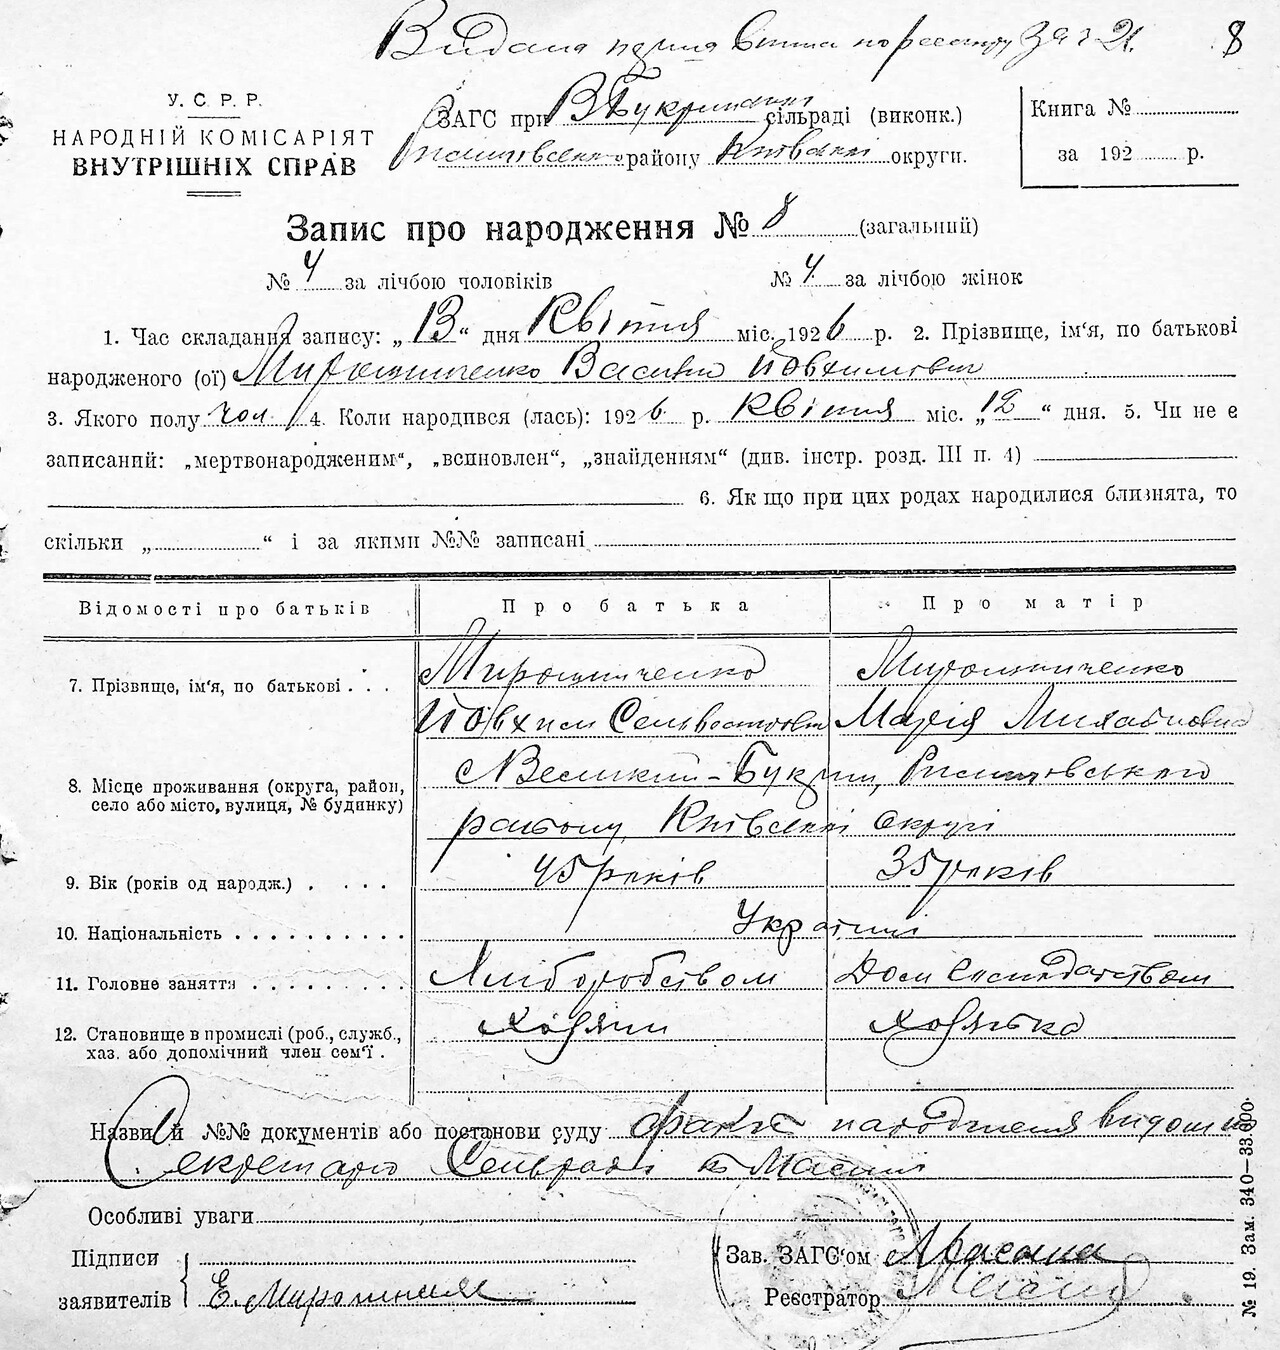 Видана повна по реєстру за № 21. 8
У. С. Р. Р.
НАРОДНІЙ КОМІСАРІЯТ
ВНУТРІШНІХ СПРАВ
ЗАГС при В Букринській сільраді (виконк.)
району Київської округи.
Книга №
за 192 р.
Запис про народження № 8 (загальний)
№ 4 за лічбою чоловіків № 4 за лічбою жінок
1. Час складання запису: „13“ дня Квітня міс. 1926 р. 2. Прізвище, ім'я, по батькові
народженого (ої) Мирошниченко Василь Йовхимович
3. Якого полу чол 4. Коли народився (лась): 1926 р. Квітня міс. „12“ дня. 5. Чи не є
записаний: „мертвонародженим“, „всиновлен“, „знайденням“ (див. інстр. розд. III п. 4)
6. Як що при цих родах народилися близнята, то
скільки „ “ і за якими №№ записані
Відомості про батьків Про батька Про матір
7. Прізвище, ім'я, по батькові . . . Мирошниченко Мирошниченко
Йовхим Сельвестрович Марія Михайловна
8. Місце проживання (округа, район,
село або місто, вулиця, № будинку)
Великий-Букрин, Ржищівського
району, Київської округи
9. Вік (років од народж.) . . . . 45 років 35 років
10. Національність . . . . . . . . . . Україн
11. Головне заняття . . . . . . . . . Хліборобством Дом Господарством
12. Становище в промислі (роб., служб.,
хаз. або допомічний член сем'ї . Хозяїн Хозяйка
Назви й №№ документів або постанови суду факт народження
Секретарю Сельради
Особливі уваги
Підписи
заявителів Е. Мирошник
Зав. ЗАГС'ом
Реєстратор
№ 19. Зам. 340—33.000.